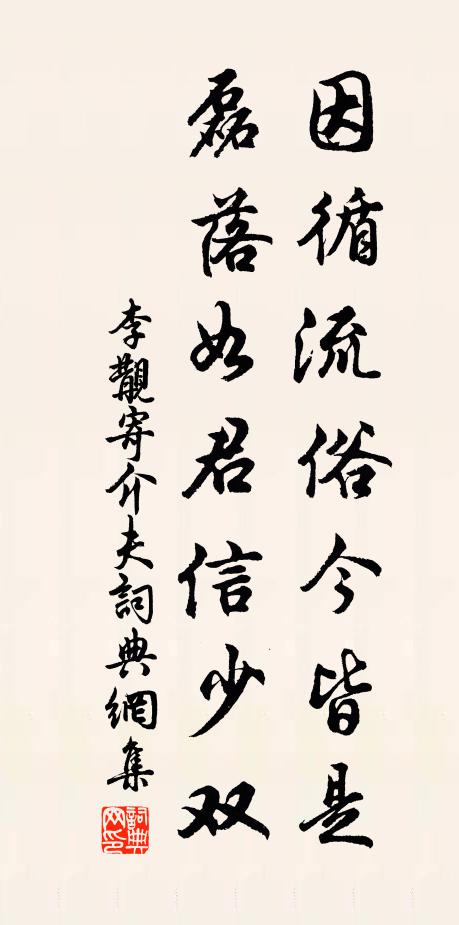 因循流俗今皆是
磊落如君信少双
李觀寄介夫詞典網集
詞典網印